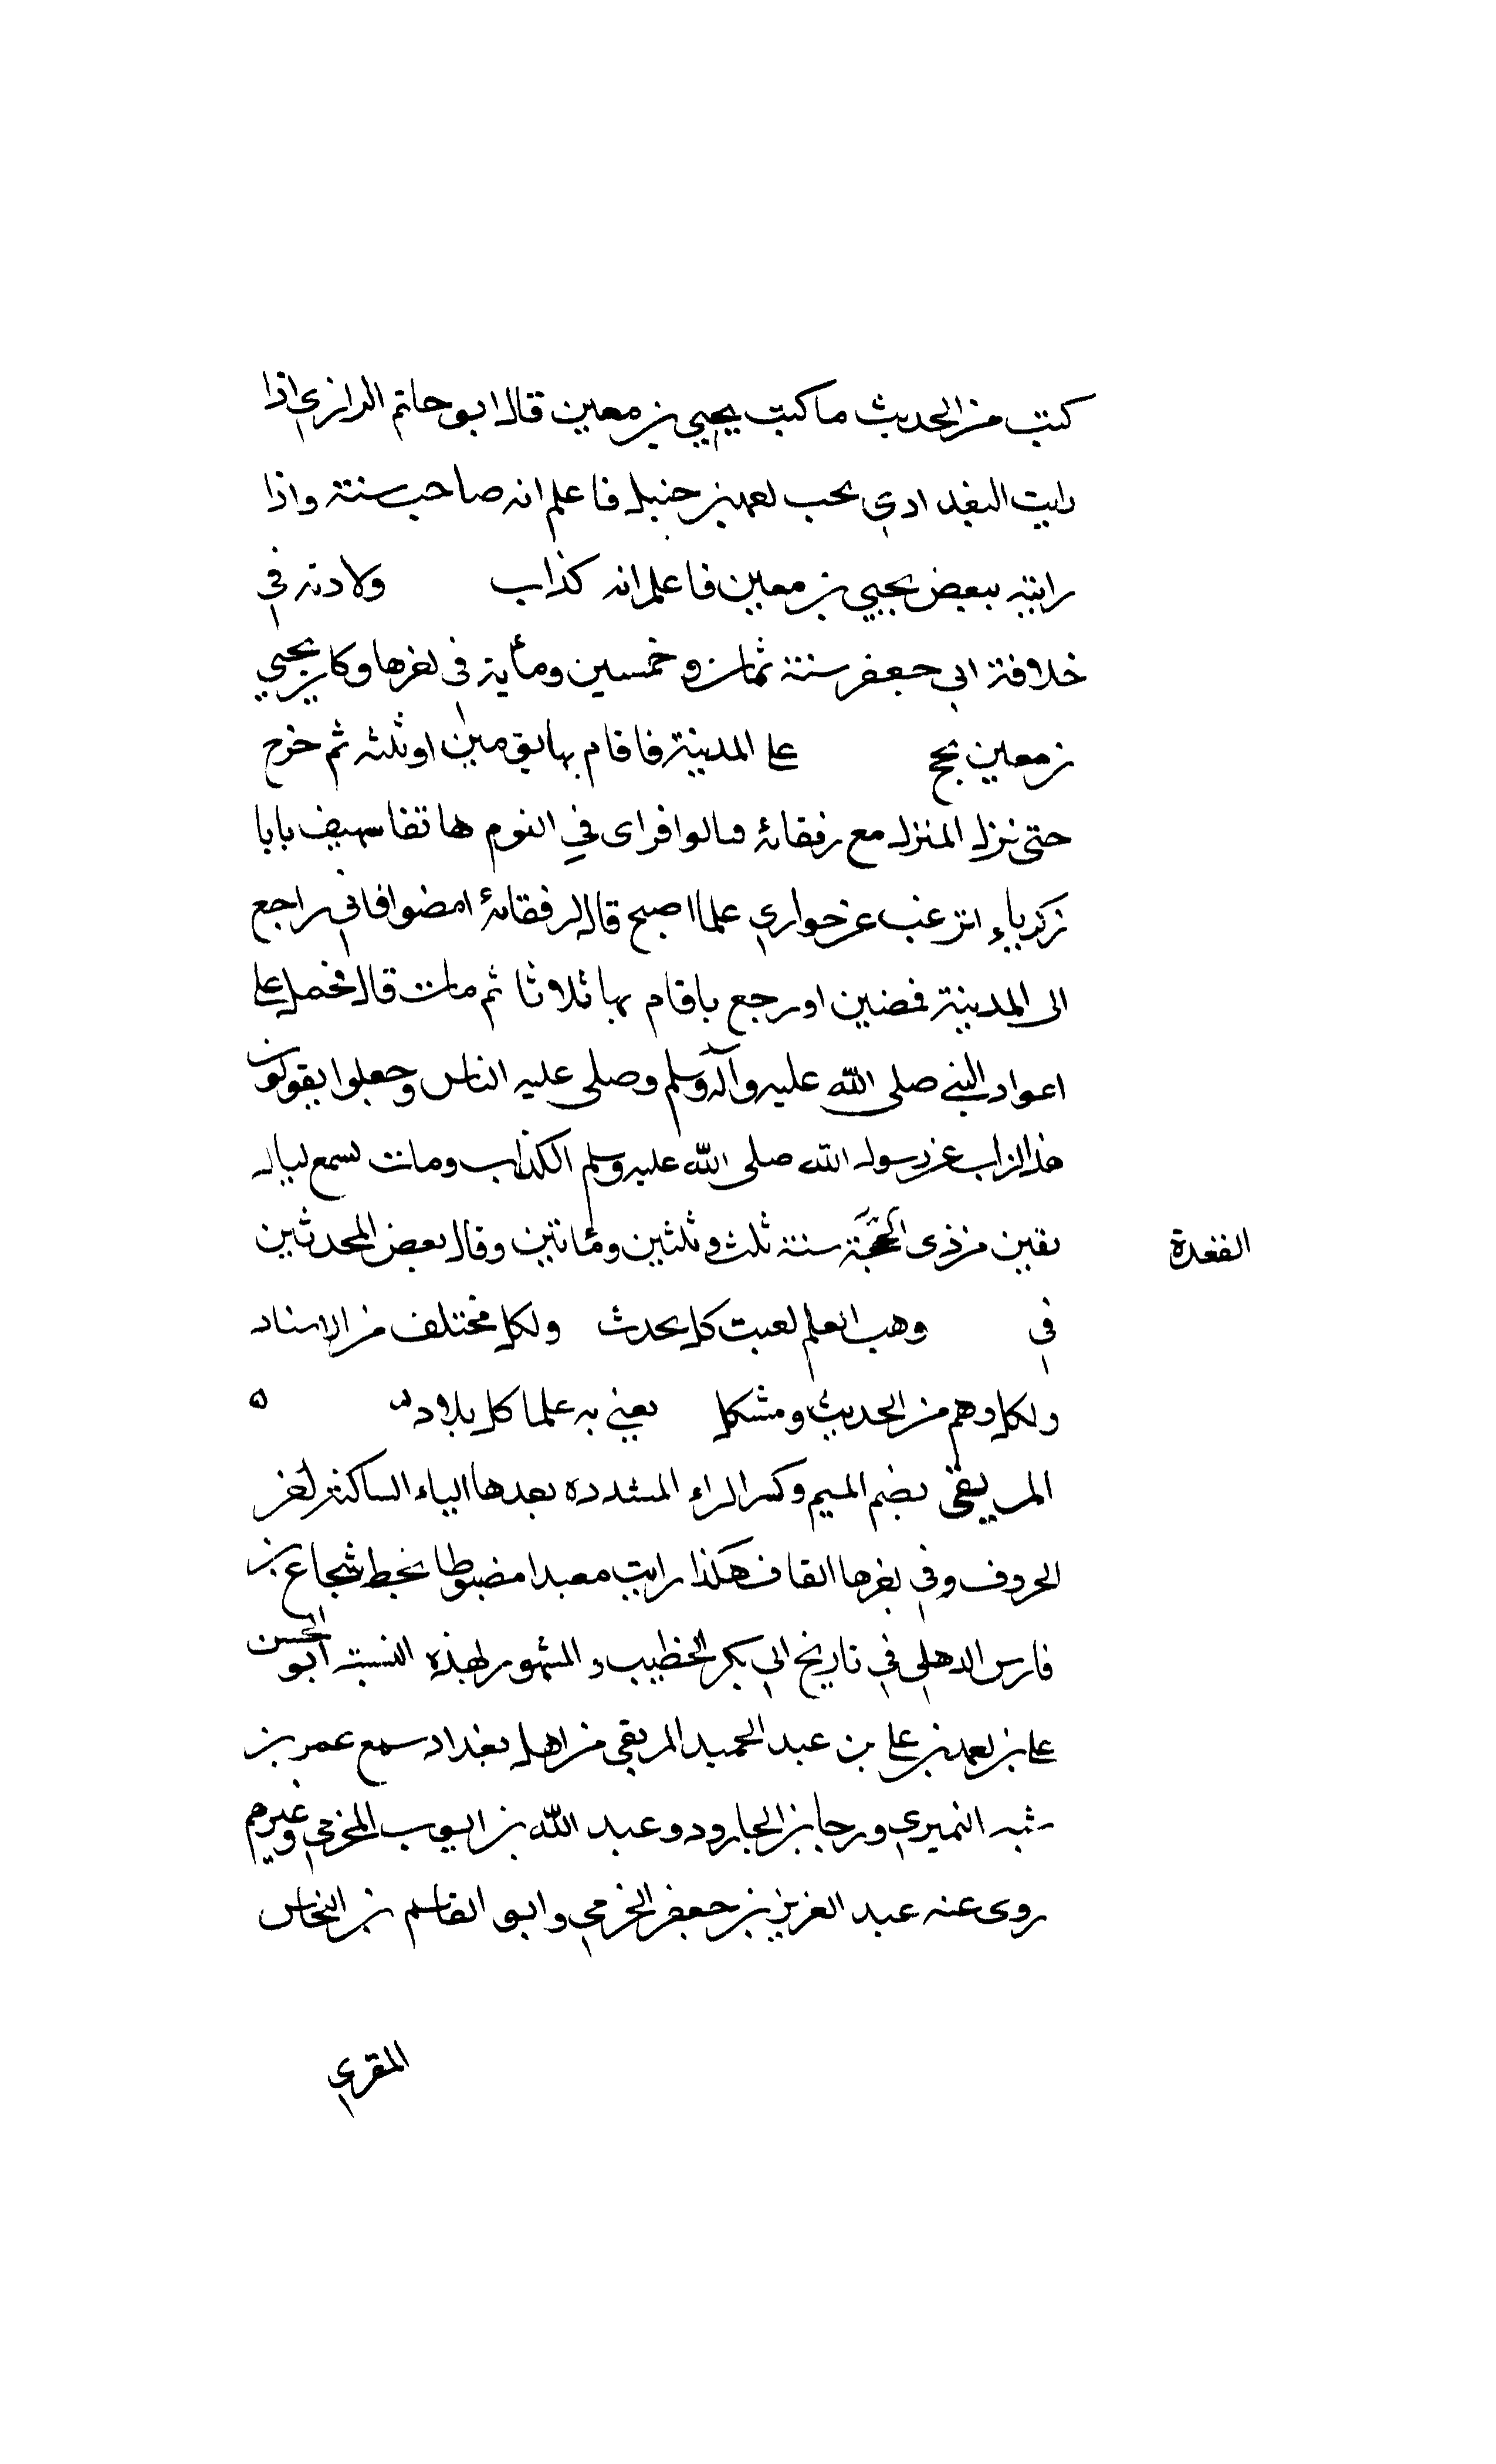 كتب من الحديث ما كتب يحيي بن معين قال ابو حاتم الرازي اذا
رايت البغدادي يحب احمد بن حنبل فاعلم انه صاحب سنة واذا
رايته يبغض يحيي بن معين فاعلم انه كذاب ولادته في
خلافة ابي جعفر سنة ثمان وخمسين ومأية في اخرها وكان يحيي
بن معين يحج على المدينة فاقام بها يومين او ثلثه ثم خرج
حتى نزل المنزل مع رفقائه فباتوا فراى في النوم هاتفا يهتف يابا
زكرياء اترغب عن جواري فلما اصبح قال لرفقائه امضوا فاني راجع
الى المدينة فمضين او رجع باقام بها ثلاثا ثم مات قال فحمل على
اعواد النبي صلى الله عليه وآله وسلم وصلى عليه الناس وجعلوا يقولون
هذا الذاب عن رسول الله صلى الله عليه وسلم الكذاب ومات لسبع ليال
بقين من ذى الحجة سنة ثلث وثلثين ومأتين وقال بعض المحدثين
القعدة
في وهب العلم لعيب كل محدث ولكل مختلف من الاسناد
ولكل وهم من الحديث ومشكل يعني به علما كل بلاد ه
المريقى بضم الميم وكسر الراء المشدده بعدها الياء الساكنة اخر
الحروف وفي اخرها القاف هكذا رايت مقيدا مضبوطا بخط شجاع بن
فارس الدهلي في تاريخ ابي بكر الخطيب والمشهور بهذه النسبة ابو الحسن
على بن احمد بن على بن عبد الحميد المريقى من اهل بغداد سمع عمر بن
شبه النميري ورجا بن الجارود وعبد الله بن ايوب المخرمي وغيرهم
روى عنه عبد العزيز بن جعفر الخرمي وابو القاسم بن النخاس
المقري